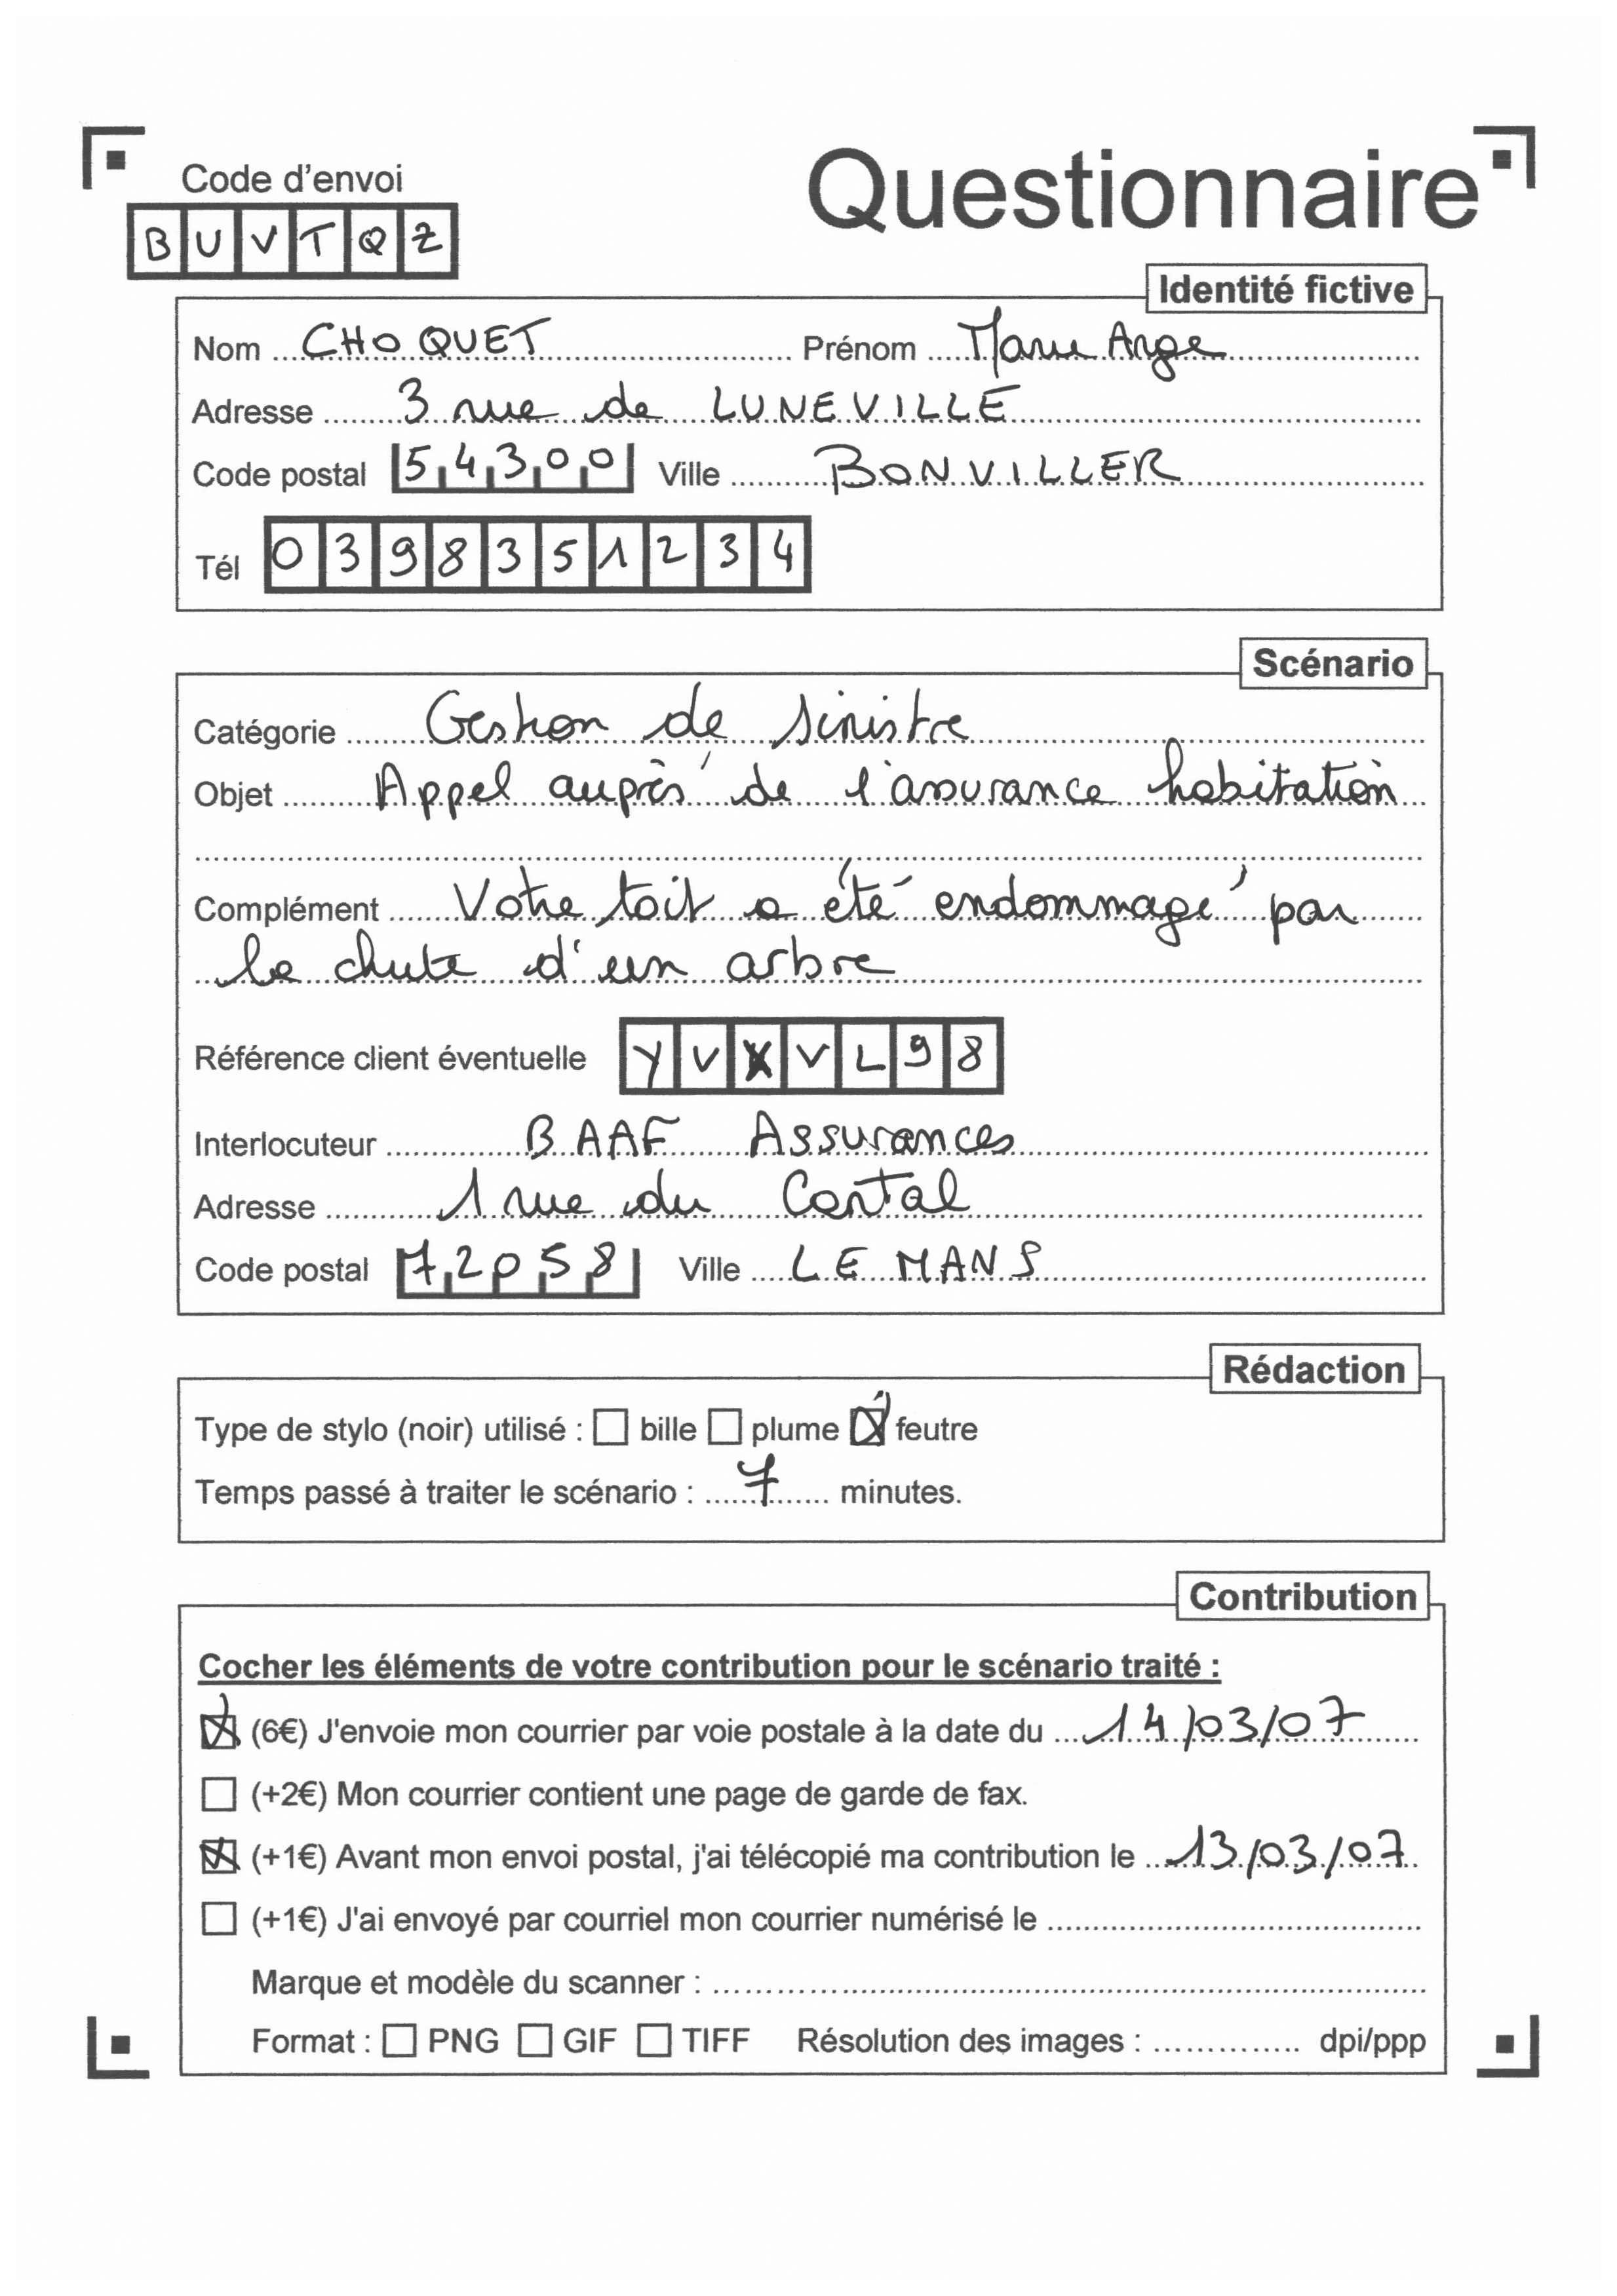 Questionnaire
Code d'envoi
BUVTQZ
Identité fictive
Nom CHOQUET Prénom Marie Ange
Adresse 3 rue de LUNEVILLE
Code postal 54300 Ville BONVILLER
Tél 0398351234
Scénario
Catégorie Gestion de sinistre
Objet Appel auprès de l'assurance habitation
Complément Votre toit a été endommagé par
la chute d'un arbre
Référence client éventuelle YVXVL98
Interlocuteur BAAF Assurances
Adresse 1 rue du Cantal
Code postal 72058 Ville LE MANS
Rédaction
Type de stylo (noir) utilisé : bille plume feutre
Temps passé à traiter le scénario : 7 minutes.
Contribution
Cocher les éléments de votre contribution pour le scénario traité :
(6€) J'envoie mon courrier par voie postale à la date du 14/03/07
(+2€) Mon courrier contient une page de garde de fax.
(+1€) Avant mon envoi postal, j'ai télécopié ma contribution le 13/03/07
(+1€) J'ai envoyé par courriel mon courrier numérisé le
Marque et modèle du scanner :
Format : PNG GIF TIFF Résolution des images : dpi/ppp